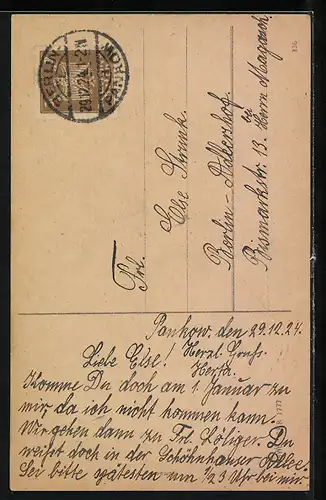 BERLIN
Frl.
Else Strunk
Berlin-Adlershof.
bei
Bismarkstr. 13. Herrn
Pankow, den 29.12.24.
Liebe Else! Herzl. Gruß.
Herta.
Komme Du doch am 1. Januar zu
mir, da ich nicht kommen kann.
Wir gehen dann zu Frl. Du
weißt doch in der Schönhauser Allee.
Sei bitte spätesten um 1/2 3 Uhr bei mir.